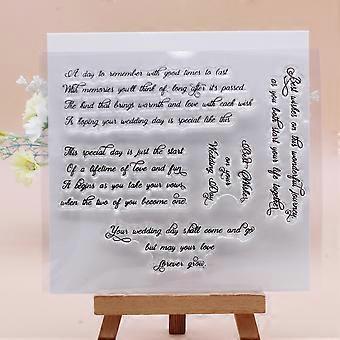 A day to remember with good times to last
With memories you'll think of long after its passed.
The kind that brings warmth and love with each wish
Is hoping your wedding day is special like this
This special day is just the start
Of a lifetime of love and fun.
It begins as you take your vows,
when the two of you become one.
Best Wishes
on your
Wedding Day
Best wishes on this wonderful journey,
as you both start your life together
Your wedding day shall come and go
but may your love
Forever grow.